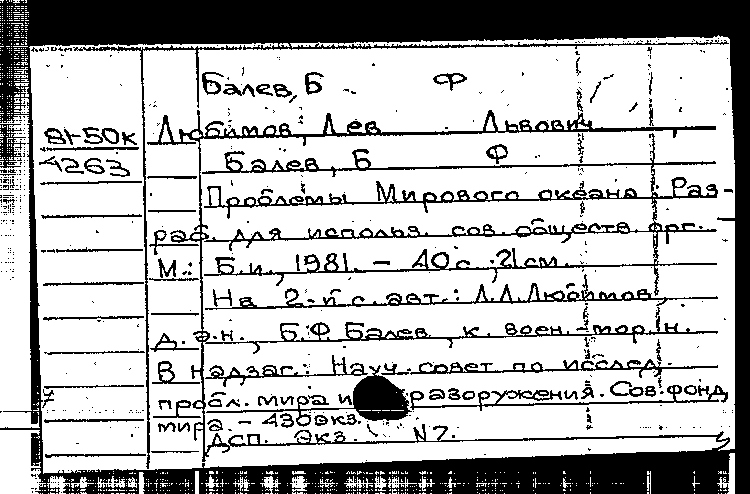 Балев, Б Ф
81-50к Любимов, Лев Львович
1263 Балев, Б Ф
Проблемы Мирового океана : Раз-
раб. для использ. сов. обществ. орг. -
М.: Б.и., 1981. - 40 с. ; 21 см.
На 2-й с. авт.: Л.Л. Любимов,
д. э. н., Б.Ф. Балев, к. воен.-мор. н.
В надзаг.: Науч. совет по исслед.
пробл. мира и разоружения. Сов. фонд
мира. - 430 экз.
ДСП. Экз. N 7.